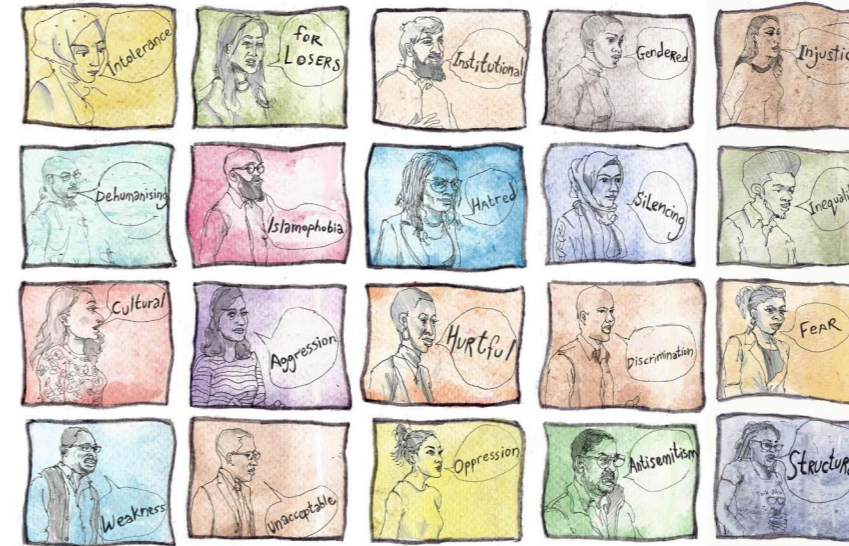 Intolerance
for
LOSERS
Institutional
Gendered
Injustic
Dehumanising
Islamophobia
Hatred
Silencing
Inequali
Cultural
Aggression
HURtful
Discrimination
FeAR
Weakness
Unacceptable
Oppression
Antisemitism
Structur